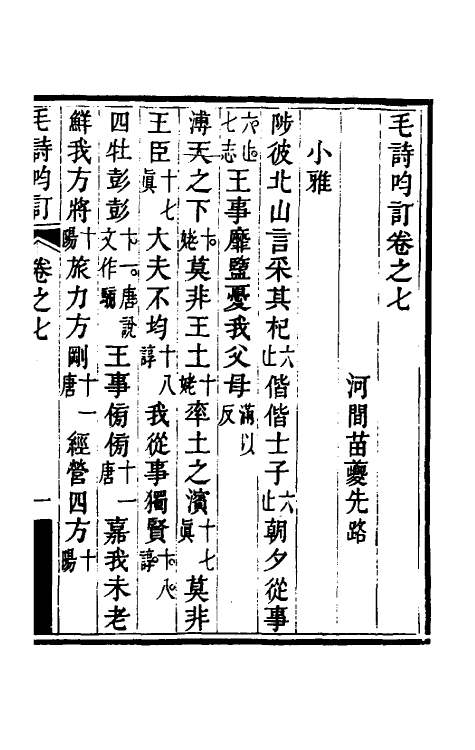 毛詩均訂卷之七
河間苗夔先路
小雅
陟彼北山言采其杞六止偕偕士子六止朝夕從事
六止七志王事靡盬憂我父母滿以反
溥天之下十姥莫非王土十姥率土之濱十七真莫非
王臣十七真大夫不均十八諄我從事獨賢十八諄
四牡彭彭十一唐說文作騯王事傍傍十一唐嘉我未老
鮮我方將十陽旅力方剛十一唐經營四方十陽
毛詩均訂 卷之七 一